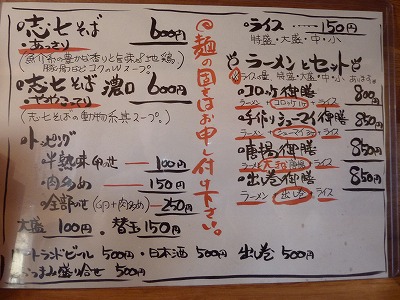 志七そば 600円
・あっさり
(魚介系の豊かな香りと旨味&地鶏
豚骨ほどコクのWスープ。)
志七そば 濃口 600円
・ややこってり
(志七そばの動物系共スープ。)
・トッピング
・半熟味卵のせ 100円
・肉多め 150円
・全部のせ (卵+肉多め) 250円
大盛 100円・替玉 150円
トランドビール 500円・日本酒 500円 出し巻 500円
おつまみ盛り合せ 500円
麺の固さはお申し付け下さい。
・ライス 150円
特盛・大盛・中・小
ラーメンとセット
ライスの量 特盛・大盛・中・小
・コロッケ御膳 800円
ラーメン+コロッケ+ライス
・手作りシューマイ御膳 850円
ラーメン+シューマイ+ライス
・唐揚御膳 850円
ラーメン+唐揚+ライス
・出し巻御膳 850円
ラーメン+出し巻+ライス